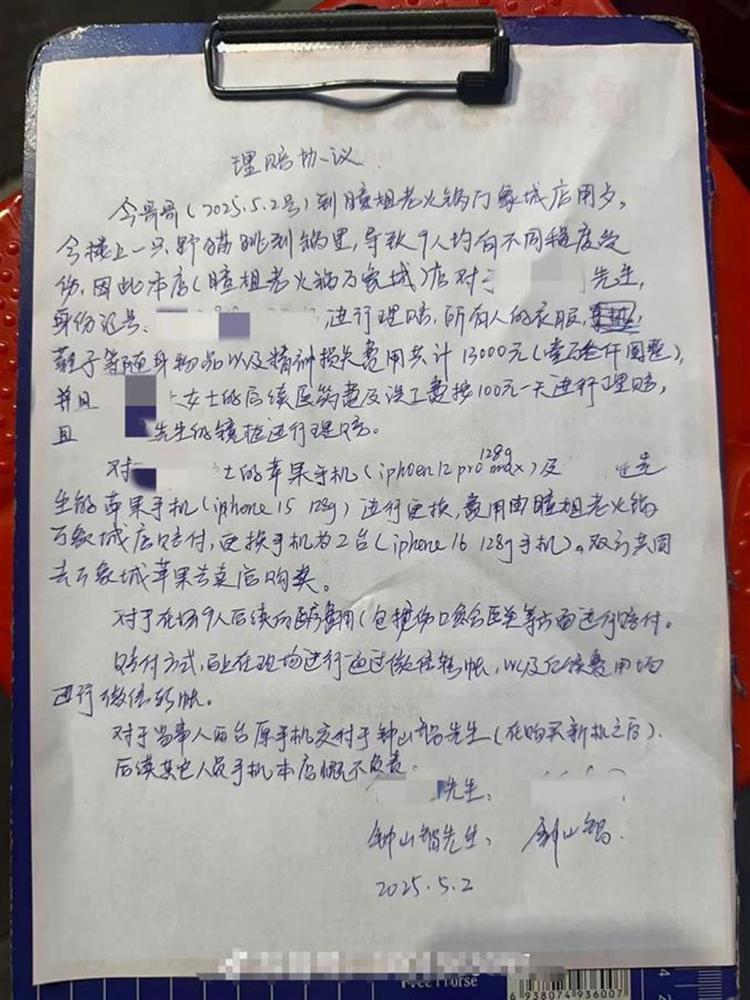 理赔协议
今哥哥(2025.5.2号)到瞳姐老火锅万象城店用夕,
今楼上一只野猫跳到锅里,导致9人均有不同程度受
伤,因此本店(瞳姐老火锅万象城)店对于 先生,
身份证号: 进行理赔,所有人的衣服,
鞋子等随身物品以及精神损失费用共计13000元(壹万叁仟圆整),
并且 女士的后续医药费及误工费按100元一天进行理赔,
且 先生的镜框进行理赔。
对 士的苹果手机(iphoen 12 pro max 128g)及 先
生的苹果手机(iphone 15 128g)进行更换,费用由瞳姐老火锅
万象城店赔付,更换手机为2台(iphone 16 128g手机)。双方共同
去万象城苹果专卖店购买。
对于在场9人后续的医疗费用(包括伤口愈合医美等方面进行赔付。
赔付方式,马上在现场进行通过微信转帐,以及后续费用均
进行微信转帐。
对于当事人两台原手机交付于钟山智先生(在购买新机之后).
后续其它人员手机本店概不负责
先生:
钟山智先生: 钟山智.
2025.5.2
Free Horse
6 938074 936007